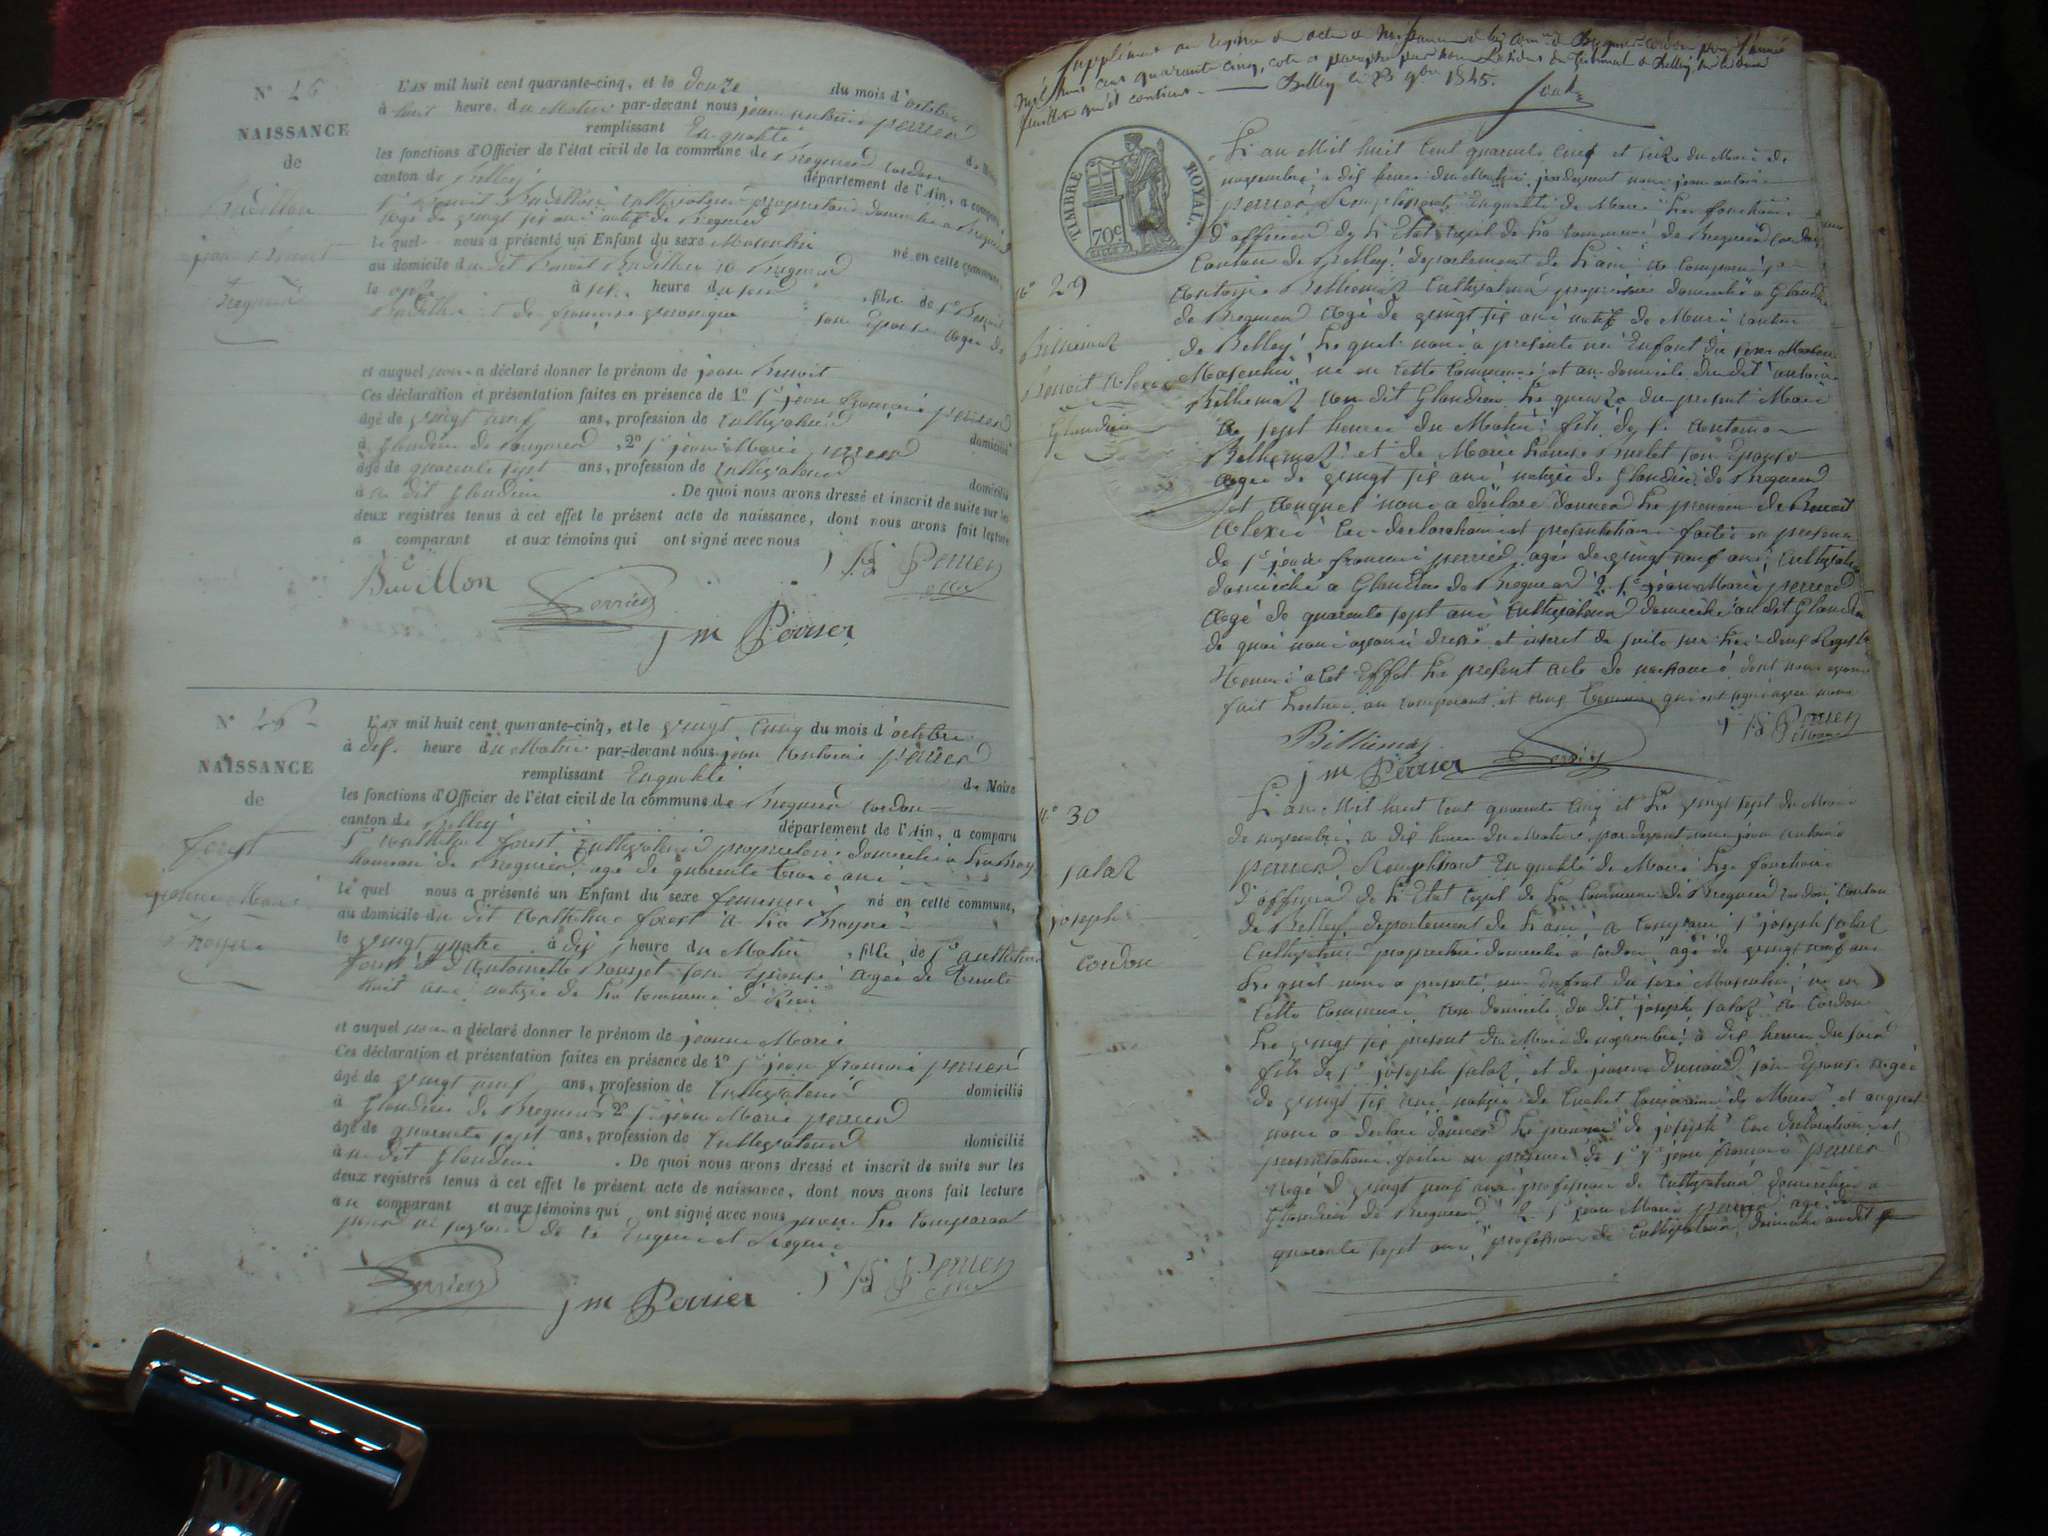 N° 26
NAISSANCE
de
Budillon
jean Benoit
Bregnier
L'AN mil huit cent quarante-cinq, et le douze du mois d'octobre
à huit heure du Matin par-devant nous jean antoine perrier
remplissant En qualité de Maire
les fonctions d'Officier de l'état civil de la commune de Bregnier Cordon
canton de Belley département de l'Ain, a comparu
Benoit Budillon Cultivateur propriétaire domicilié a Bregnier
agé de vingt six ans natif de Bregnier
le quel nous a présenté un Enfant du sexe Masculin né en cette commune,
au domicile du dit Benoit Budillon a Bregnier
le onze à six heure du soir, fils de Sr Benoit
Budillon et de françoise son Epouse agée de
et auquel a déclaré donner le prénom de jean Benoit
Ces déclaration et présentation faites en présence de 1° Sr jean françois perrier
âgé de vingt neuf ans, profession de Cultivateur domicilié
à Glandieu de Bregnier, 2° Sr jean Marie perrier
âgé de quarante sept ans, profession de Cultivateur domicilié
à u dit Glandieu. De quoi nous avons dressé et inscrit de suite sur les
deux registres tenus à cet effet le présent acte de naissance, dont nous avons fait lecture
a comparant et aux témoins qui ont signé avec nous
Budillon
Perrier
j m Perrier
N°
NAISSANCE
de
forest
jeanne Marie
L'AN mil huit cent quarante-cinq, et le vingt cinq du mois d'octobre
à dix heure du Matin par-devant nous jean antoine perrier
remplissant En qualité de Maire
les fonctions d'Officier de l'état civil de la commune de Bregnier Cordon
canton de Belley département de l'Ain, a comparu
Sr forest Cultivateur propriétaire domicilié a
hameau de Bregnier, agé de quarante trois ans
le quel nous a présenté un Enfant du sexe feminin né en cette commune,
au domicile du dit forest a La
le vingt quatre à dix heure du Matin, fille de Sr
forest et d'Antoinette son Epouse agée de trente
huit ans native de La commune d'
et auquel nous a déclaré donner le prénom de jeanne Marie
Ces déclaration et présentation faites en présence de 1° Sr jean françois perrier
âgé de vingt neuf ans, profession de Cultivateur domicilié
à Glandieu de Bregnier 2° Sr jean Marie perrier
âgé de quarante sept ans, profession de Cultivateur domicilié
à u dit Glandieu. De quoi nous avons dressé et inscrit de suite sur les
deux registres tenus à cet effet le présent acte de naissance, dont nous avons fait lecture
au comparant et aux témoins qui ont signé avec nous Le comparant
pour ne savoir de ce Enquis et Requis
Perrier
j m Perrier
Supplément au registre des actes de naissance de la comne de Bregnier-Cordon pour l'année
mil huit cent quarante cinq, coté et paraphé par nous Président du Tribunal de Belley
feuillet qu'il contient. Belley le 23 9bre 1845.
TIMBRE ROYAL.
70c
N° 29
Billiemaz
Benoit Alexis
Glandieu
L'an Mil huit Cent quarante Cinq et seize du Mois de
novembre a dix heure du Matin, pardevant nous jean antoine
perrier Remplissant En qualité de Maire Les fonctions
d'officier de L'Etat Civil de La commune de Bregnier Cordon
Canton de Belley département de L'ain a comparu Sr
Antoine Billiemaz Cultivateur propriétaire domicilié a Glandieu
de Bregnier Agé de vingt six ans natif de Murs canton
de Belley Le quel nous a présenté un Enfant du sexe
Masculin, né en cette Commune, et au domicile du dit antoine
Billiemaz au dit Glandieu Le quinze du present Mois
a sept heures du Matin fils de Sr Antoine
Billiemaz et de Marie Louise Burlet son Epouse
agée de vingt six ans, native de Glandieu de Bregnier
et Auquel nous a déclaré donner Le prenom de Benoit
Alexis Ces declaration et presentation faites en présence
de Sr jean françois perrier agé de vingt neuf ans, Cultivateur
domicilié a Glandieu de Bregnier 2° Sr jean Marie perrier
Agé de quarante sept ans Cultivateur domicilié au dit Glandieu
de quoi nous avons dressé et inscrit de suite sur Les deux Registres
tenus a cet Effet Le présent acte de naissance dont nous avons
fait Lecture au comparant et aux temoins qui ont signé avec nous
Billiemaz
j m Perrier
N° 30
salaz
joseph
Cordon
L'an Mil huit Cent quarante Cinq et Le vingt sept du Mois
de novembre, a dix heure du Matin, pardevant nous jean antoine
perrier Remplissant En qualité de Maire Les fonctions
d'officier de L'Etat Civil de La Commune de Bregnier Cordon, Canton
de Belley département de L'ain, a comparu Sr joseph salaz
Cultivateur propriétaire domicilié a Cordon, agé de vingt neuf ans
Le quel nous a présenté un Enfant du sexe Masculin, né en
Cette Commune au domicile du dit joseph salaz a Cordon
Le vingt six présent du Mois de novembre a dix heure du soir
fils de Sr joseph salaz, et de jeanne son Epouse agée
de vingt six ans native de de Murs et auquel
nous a declaré donner Le prenom de joseph Ces declaration et
presentation faites en présence de 1° Sr jean françois perrier
Agé de vingt neuf ans profession de Cultivateur domicilié a
Glandieu de Bregnier 2° Sr jean Marie perrier agé de
quarante sept ans, profession de Cultivateur, domicilié au dit